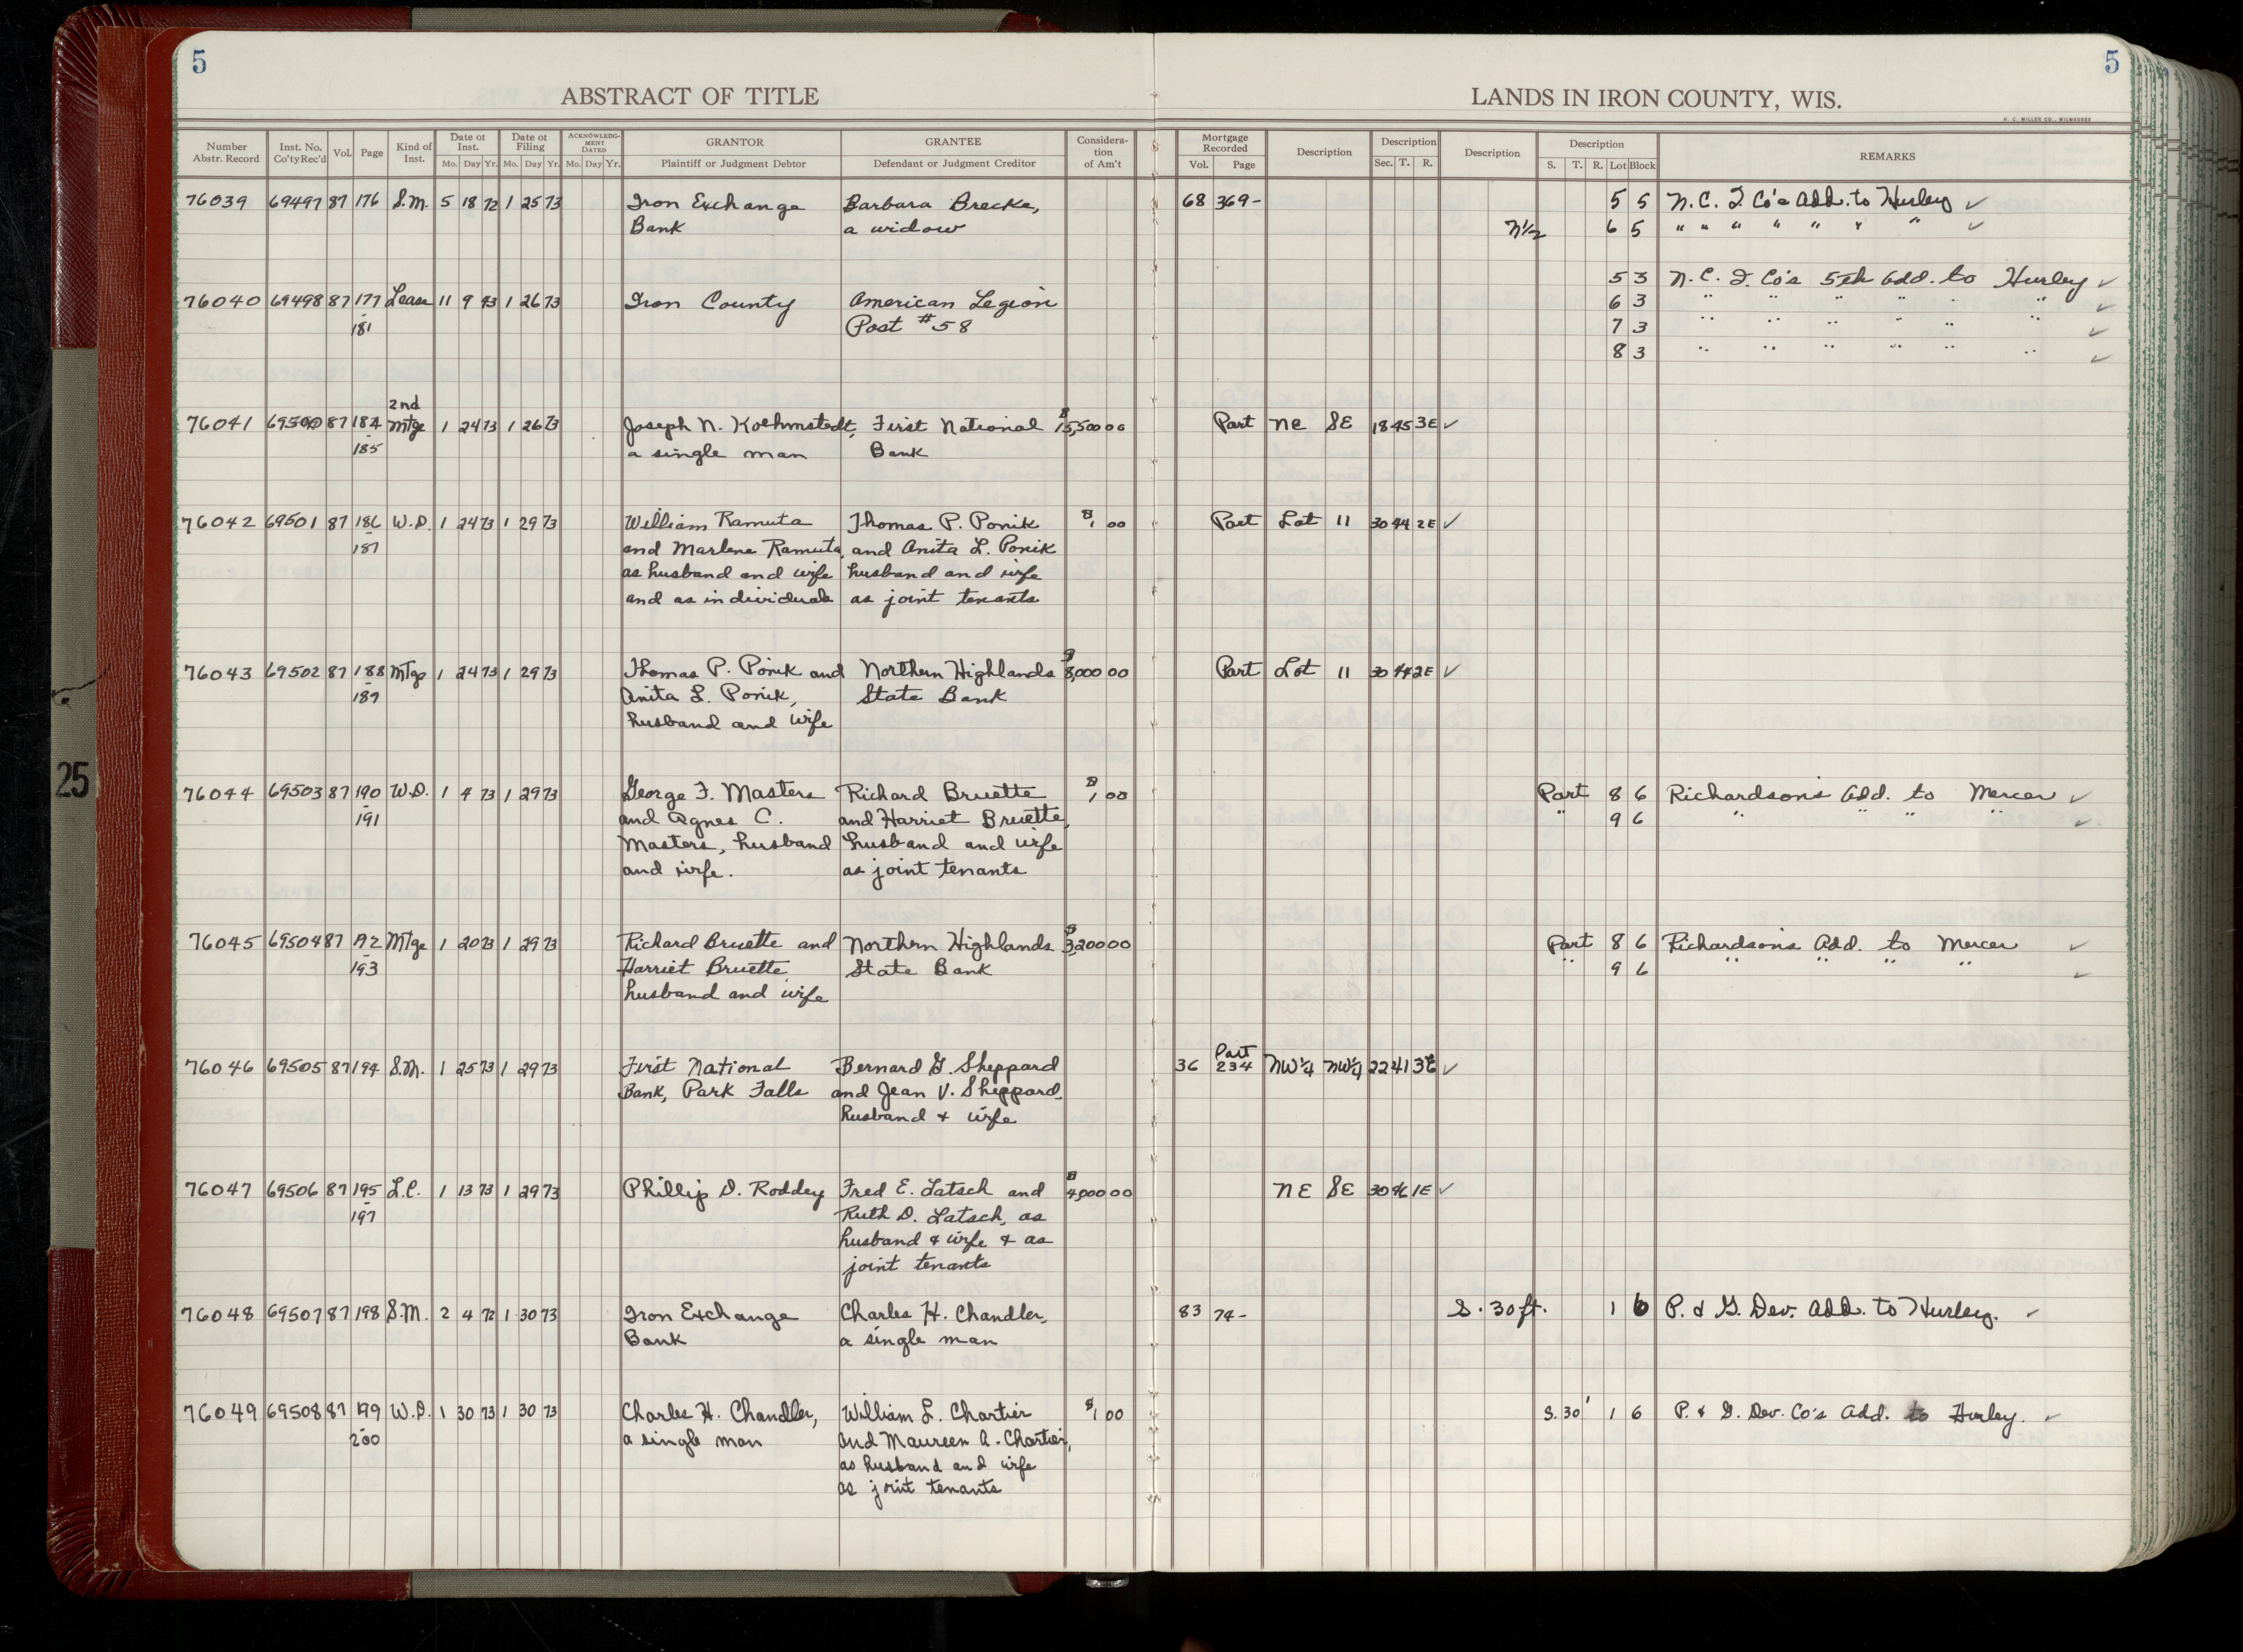 5
5
ABSTRACT OF TITLE
LANDS IN IRON COUNTY, WIS.
H. C. MILLER CO., MILWAUKEE
Number Abstr. Record
Inst. No. Co'ty Rec'd
Vol.
Page
Kind of Inst.
Date of Inst.
Mo. Day Yr.
Date of Filing
Mo. Day Yr.
ACKNOWLEDGMENT DATED
Mo. Day Yr.
GRANTOR
Plaintiff or Judgment Debtor
GRANTEE
Defendant or Judgment Creditor
Consideration of Am't
Mortgage Recorded
Vol. Page
Description
Description
Sec. T. R.
Description
Description
S. T. R. Lot Block
REMARKS
76039 69497 87 176 S.M. 5 18 72 1 25 73 Iron Exchange Barbara Brecke, 68 369- 5 5 N.C. I. Co's Add. to Hurley ✓
Bank a widow N½ 6 5 " " " " " " " ✓
5 3 N.C. I. Co's 5th Add. to Hurley ✓
76040 69498 87 177 Lease 11 9 73 1 26 73 Iron County American Legion 6 3 " " " " " " ✓
- 181 Post #58 7 3 " " " " " " ✓
8 3 " " " " " " ✓
2nd
76041 69500 87 184 Mtge 1 24 73 1 26 73 Joseph N. Koehmstedt, First National $15,500 00 Part NE SE 18 45 3E ✓
- 185 a single man Bank
76042 69501 87 186 W.D. 1 24 73 1 29 73 William Ramuta Thomas P. Ponik $1 00 Part Lot 11 30 44 2E ✓
- 187 and Marlene Ramuta, and Anita L. Ponik
as husband and wife husband and wife
and as individuals as joint tenants
76043 69502 87 188 Mtge 1 24 73 1 29 73 Thomas P. Ponik and Northern Highlands $8,000 00 Part Lot 11 30 44 2E ✓
- 189 Anita L. Ponik, State Bank
husband and wife
76044 69503 87 190 W.D. 1 4 73 1 29 73 George F. Masters Richard Bruette $1 00 Part 8 6 Richardson's Add. to Mercer ✓
- 191 and Agnes C. and Harriet Bruette, " 9 6 " " " " ✓
Masters, husband husband and wife
and wife. as joint tenants
76045 69504 87 192 Mtge 1 20 73 1 29 73 Richard Bruette and Northern Highlands $3,200 00 Part 8 6 Richardson's Add. to Mercer ✓
- 193 Harriet Bruette, State Bank " 9 6 " " " " ✓
husband and wife
Part
76046 69505 87 194 S.M. 1 25 73 1 29 73 First National Bernard G. Sheppard 36 234 NW¼ NW¼ 22 41 3E ✓
Bank, Park Falls and Jean V. Sheppard,
husband & wife
76047 69506 87 195 L.C. 1 13 73 1 29 73 Phillip D. Roddey Fred E. Latsch and $4,900 00 NE SE 30 46 1E ✓
- 197 Ruth D. Latsch, as
husband & wife & as
joint tenants
76048 69507 87 198 S.M. 2 4 72 1 30 73 Iron Exchange Charles H. Chandler, 83 74- S. 30 ft. 1 6 P. & G. Dev. Add. to Hurley. ✓
Bank a single man
76049 69508 87 199 W.D. 1 30 73 1 30 73 Charles H. Chandler, William L. Chartier $1 00 S. 30' 1 6 P. & G. Dev. Co's Add. to Hurley. ✓
- 200 a single man and Maureen A. Chartier,
as husband and wife
as joint tenants
25